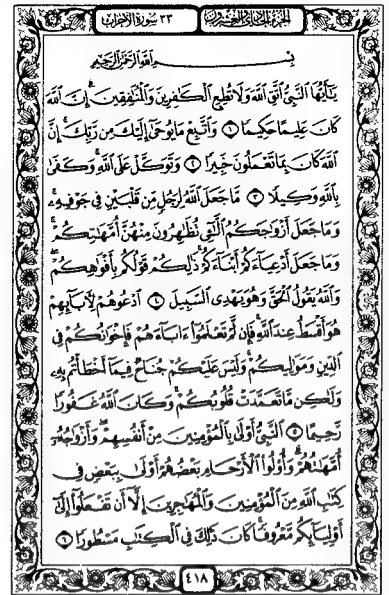 الجزء الحادي والعشرون ٣٣ سورة الأحزاب
بِسْمِ اللَّهِ الرَّحْمَٰنِ الرَّحِيمِ
يَٰٓأَيُّهَا ٱلنَّبِيُّ ٱتَّقِ ٱللَّهَ وَلَا تُطِعِ ٱلْكَٰفِرِينَ وَٱلْمُنَٰفِقِينَ إِنَّ ٱللَّهَ
كَانَ عَلِيمًا حَكِيمًا ١ وَٱتَّبِعْ مَا يُوحَىٰٓ إِلَيْكَ مِن رَّبِّكَ إِنَّ
ٱللَّهَ كَانَ بِمَا تَعْمَلُونَ خَبِيرًا ٢ وَتَوَكَّلْ عَلَى ٱللَّهِ وَكَفَىٰ
بِٱللَّهِ وَكِيلًا ٣ مَّا جَعَلَ ٱللَّهُ لِرَجُلٍ مِّن قَلْبَيْنِ فِي جَوْفِهِۦ
وَمَا جَعَلَ أَزْوَٰجَكُمُ ٱلَّٰٓـِٔي تُظَٰهِرُونَ مِنْهُنَّ أُمَّهَٰتِكُمْ
وَمَا جَعَلَ أَدْعِيَآءَكُمْ أَبْنَآءَكُمْ ذَٰلِكُمْ قَوْلُكُم بِأَفْوَٰهِكُمْ
وَٱللَّهُ يَقُولُ ٱلْحَقَّ وَهُوَ يَهْدِي ٱلسَّبِيلَ ٤ ٱدْعُوهُمْ لِأٓبَآئِهِمْ
هُوَ أَقْسَطُ عِندَ ٱللَّهِ فَإِن لَّمْ تَعْلَمُوٓا۟ ءَابَآءَهُمْ فَإِخْوَٰنُكُمْ فِي
ٱلدِّينِ وَمَوَٰلِيكُمْ وَلَيْسَ عَلَيْكُمْ جُنَاحٌ فِيمَآ أَخْطَأْتُم بِهِۦ
وَلَٰكِن مَّا تَعَمَّدَتْ قُلُوبُكُمْ وَكَانَ ٱللَّهُ غَفُورًا
رَّحِيمًا ٥ ٱلنَّبِيُّ أَوْلَىٰ بِٱلْمُؤْمِنِينَ مِنْ أَنفُسِهِمْ وَأَزْوَٰجُهُۥٓ
أُمَّهَٰتُهُمْ وَأُو۟لُوا۟ ٱلْأَرْحَامِ بَعْضُهُمْ أَوْلَىٰ بِبَعْضٍ فِي
كِتَٰبِ ٱللَّهِ مِنَ ٱلْمُؤْمِنِينَ وَٱلْمُهَٰجِرِينَ إِلَّآ أَن تَفْعَلُوٓا۟ إِلَىٰٓ
أَوْلِيَآئِكُم مَّعْرُوفًا كَانَ ذَٰلِكَ فِي ٱلْكِتَٰبِ مَسْطُورًا ٦
٤١٨